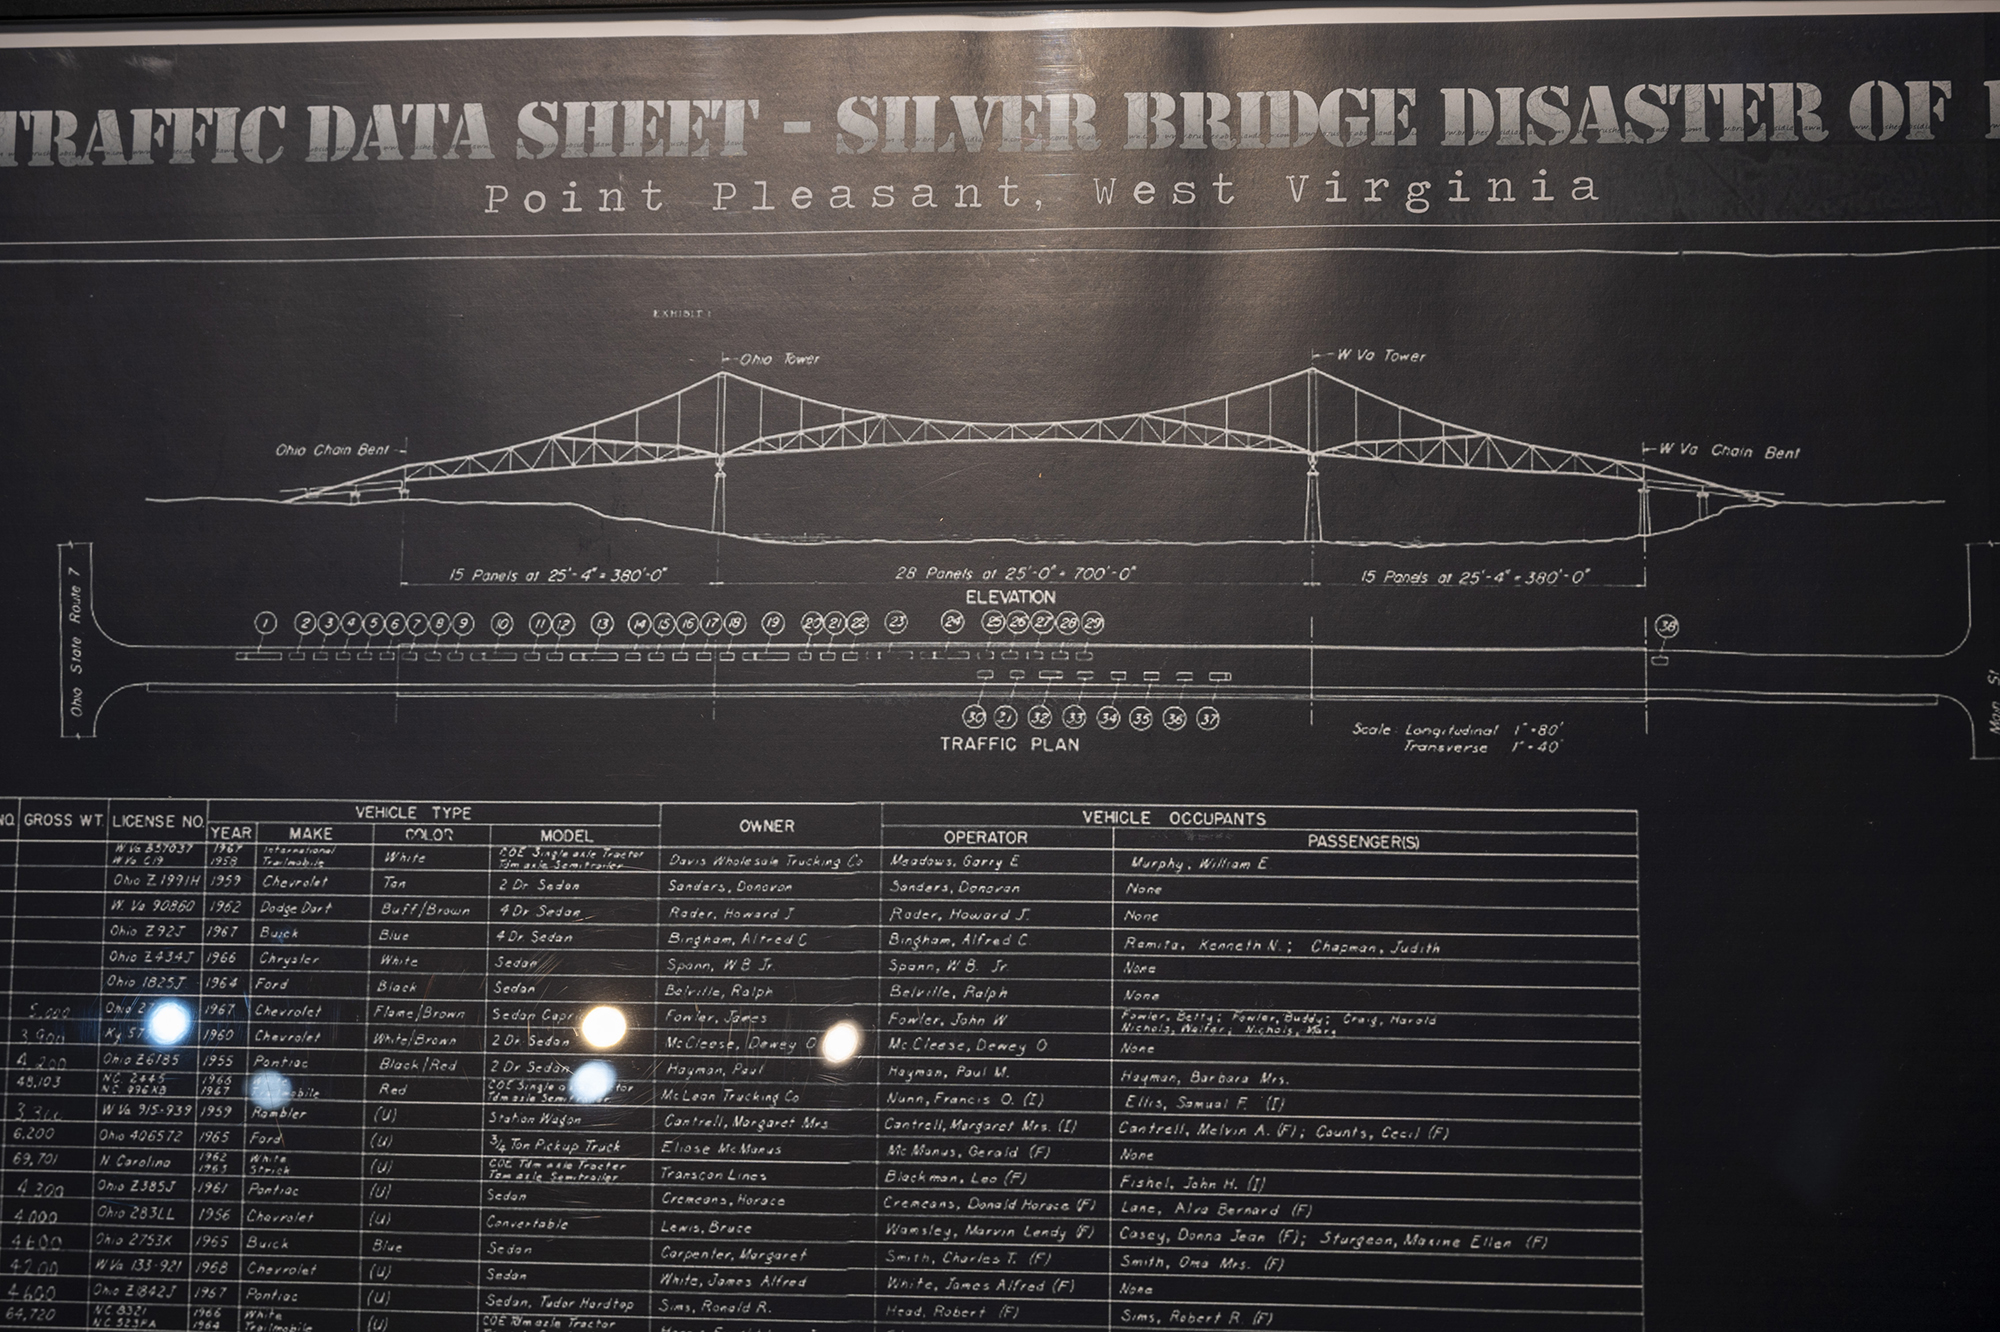 TRAFFIC DATA SHEET - SILVER BRIDGE DISASTER OF
Point Pleasant, West Virginia
EXHIBIT 1
Ohio Tower
W Va Tower
Ohio Chain Bent
W Va Chain Bent
15 Panels at 25'-4" = 380'-0"
28 Panels at 25'-0" = 700'-0"
15 Panels at 25'-4" = 380'-0"
ELEVATION
Ohio State Route 7
1 2 3 4 5 6 7 8 9 10 11 12 13 14 15 16 17 18 19 20 21 22 23 24 25 26 27 28 29
38
30 31 32 33 34 35 36 37
TRAFFIC PLAN
Scale: Longitudinal 1"=80'
Transverse 1"=40'
Main St
NO. GROSS WT. LICENSE NO. VEHICLE TYPE OWNER VEHICLE OCCUPANTS
YEAR MAKE COLOR MODEL OPERATOR PASSENGER(S)
W Va B37037 1967 International White COE Single axle Tractor Davis Wholesale Trucking Co Meadows, Garry E. Murphy, William E
W Va C19 1958 Trailmobile Tdm axle Semitrailer
Ohio Z1991H 1959 Chevrolet Tan 2 Dr Sedan Sanders, Donovan Sanders, Donovan None
W. Va 90860 1962 Dodge Dart Buff/Brown 4 Dr Sedan Rader, Howard J Rader, Howard J. None
Ohio Z92J 1967 Buick Blue 4 Dr. Sedan Bingham, Alfred C Bingham, Alfred C. Remita, Kenneth N.; Chapman, Judith
Ohio Z434J 1966 Chrysler White Sedan Spann, W B Jr. Spann, W B. Jr. None
Ohio 1825J 1964 Ford Black Sedan Belville, Ralph Belville, Ralph None
5,000 Ohio 1967 Chevrolet Flame/Brown Sedan Fowler, James Fowler, John W Fowler, Betty; Fowler, Buddy; Craig, Harold
Nichols, Walter; Nichols, Mary
3,900 Ky 1960 Chevrolet White/Brown 2 Dr. Sedan McCleese, Dewey O McCleese, Dewey O None
4,200 Ohio Z6185 1955 Pontiac Black/Red 2 Dr Sedan Hayman, Paul Hayman, Paul M. Hayman, Barbara Mrs.
48,103 NC 2445 1966 Red COE Single McLean Trucking Co Nunn, Francis O. (I) Ellis, Samual F. (I)
NC 996XB 1967 Tdm axle
W Va 915-939 1959 Rambler (U) Station Wagon Cantrell, Margaret Mrs Cantrell, Margaret Mrs. (I) Cantrell, Melvin A. (F); Counts, Cecil (F)
6,200 Ohio 406572 1965 Ford (U) 3/4 Ton Pickup Truck Eliose McManus McManus, Gerald (F) None
69,701 N Carolina 1962 White (U) COE Tdm axle Tractor Transcon Lines Blackman, Leo (F) Fishel, John H. (I)
1963 Strick Tdm axle Semitrailer
4,300 Ohio Z385J 1961 Pontiac (U) Sedan Cremeans, Horace Cremeans, Donald Horace (F) Lane, Alva Bernard (F)
4,000 Ohio 283LL 1956 Chevrolet (U) Convertable Lewis, Bruce Wamsley, Marvin Lendy (F) Casey, Donna Jean (F); Sturgeon, Maxine Ellen (F)
4600 Ohio 2753K 1965 Buick Blue Sedan Carpenter, Margaret Smith, Charles T. (F) Smith, Oma Mrs. (F)
4200 W Va 133-921 1968 Chevrolet (U) Sedan White, James Alfred White, James Alfred (F) None
4,600 Ohio Z1842J 1967 Pontiac (U) Sedan, Tudor Hardtop Sims, Ronald R. Head, Robert (F) Sims, Robert R. (F)
64,720 NC 8321 1966 White (U) COE Tdm axle Tractor
NC 523PA 1964 Trailmobile